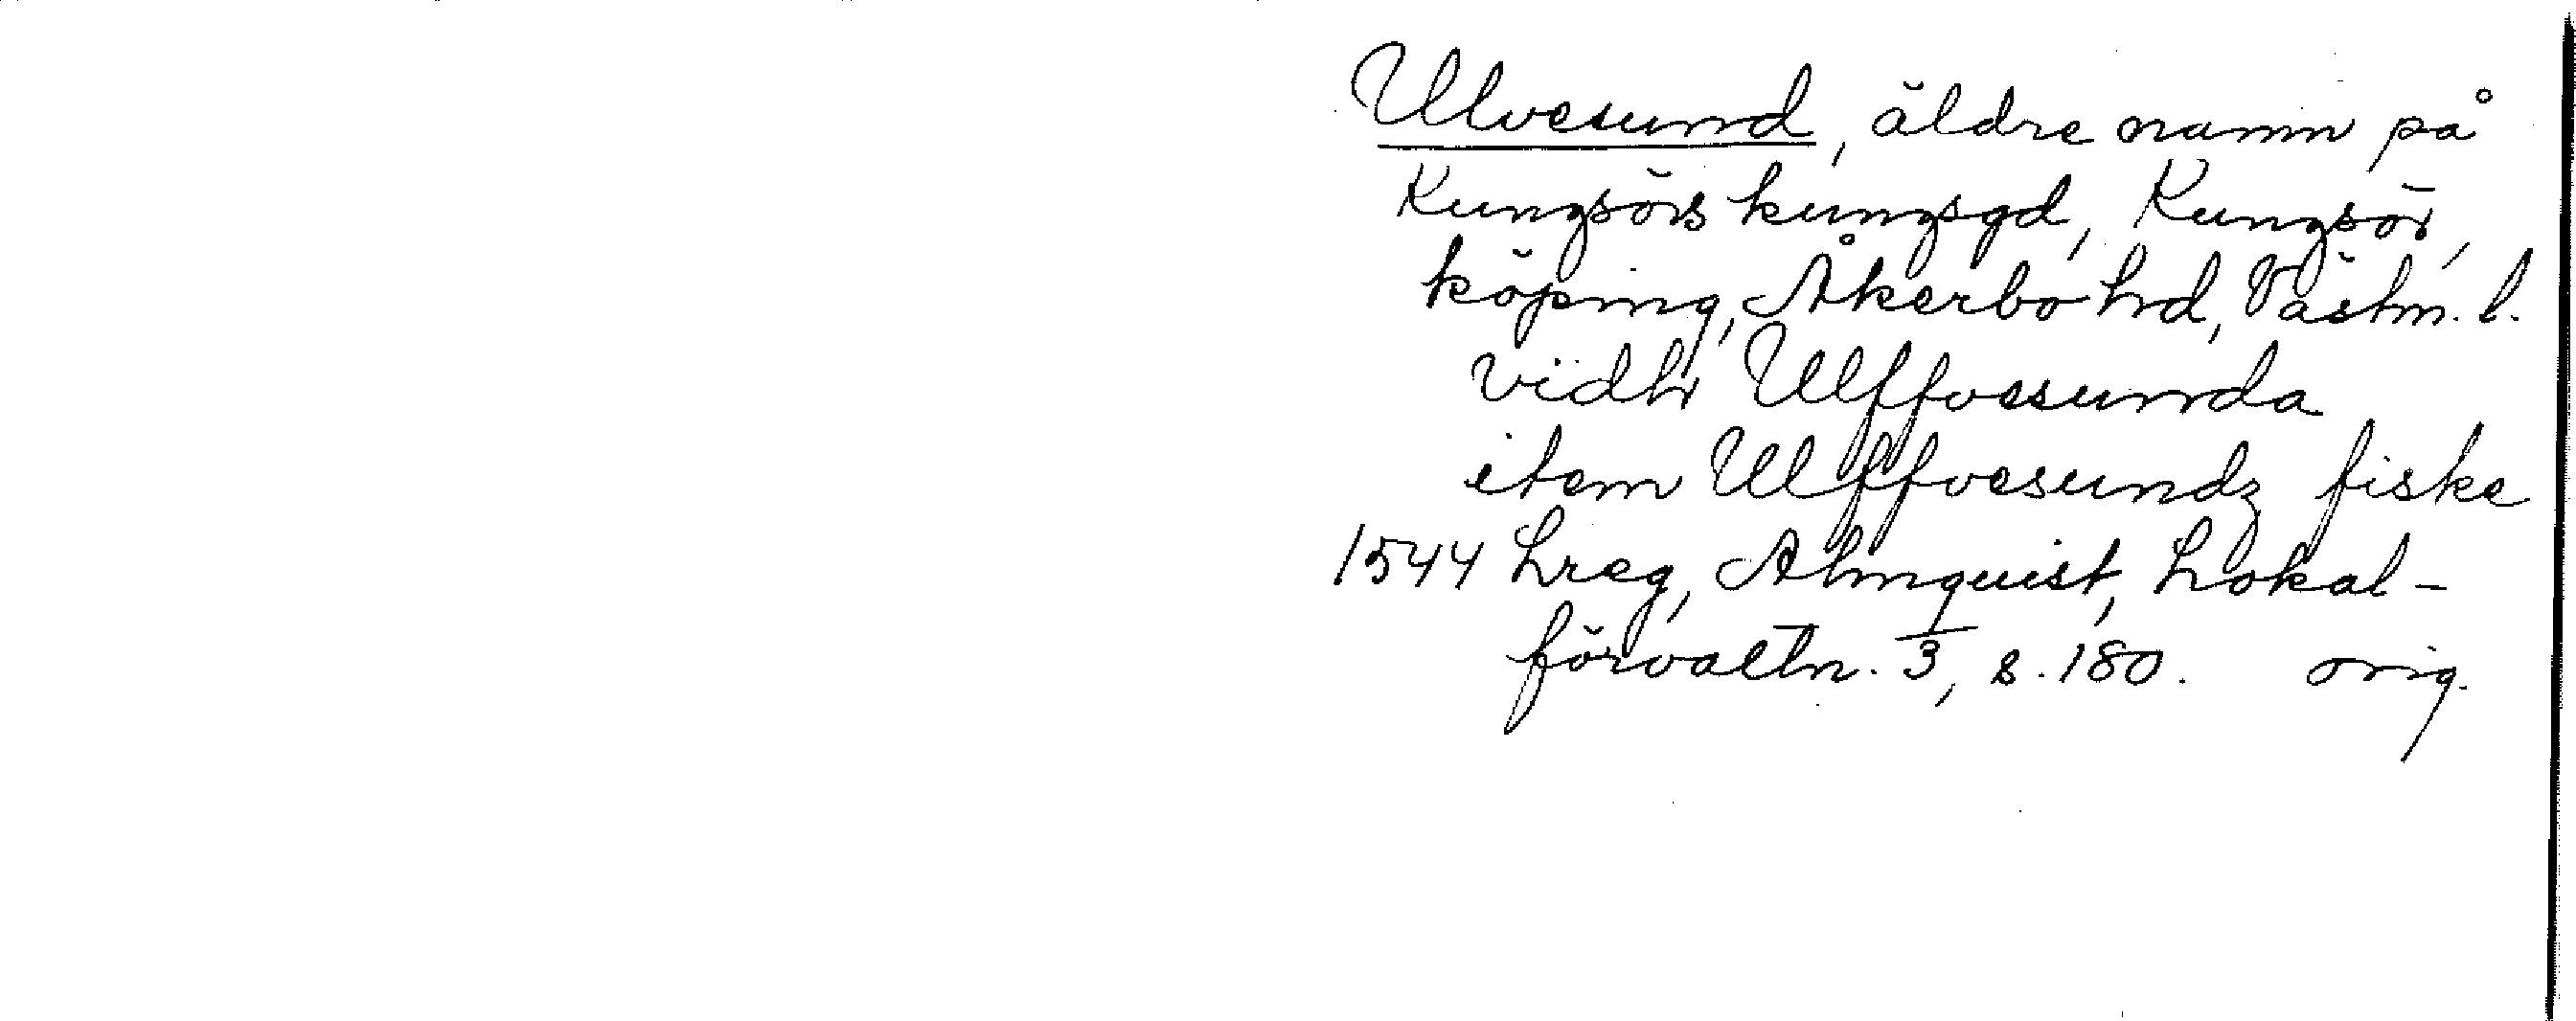 Ulvesund, äldre namn på
Kungsörs kungsgd, Kungsör,
köping, Åkerbo hd, Västm. l.
vidh Ulffvesunda
item Ulffvesundz fiske
1544 Lreg, Almquist, Lokal-
förvaltn. 3, s. 180. orig.